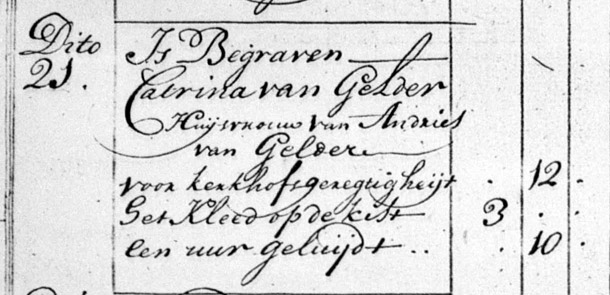 Dito
21.
Is Begraven
Catrina van Gelder
Huijsvrouw van Andries
van Gelder
voor kerkhofsgeregtigheijt . 12 .
het Kleed op de kist 3 . .
een uur geluijdt .. . 10 .